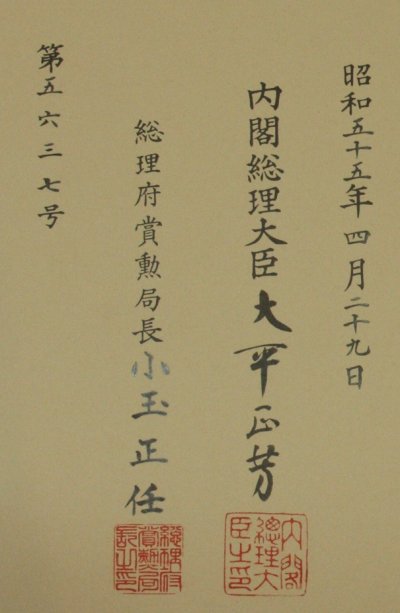 昭和五十五年四月二十九日
内閣総理大臣大平正芳
内閣總理大臣之印
総理府賞勲局長小玉正任
総理府賞勲局長之印
第五六三七号